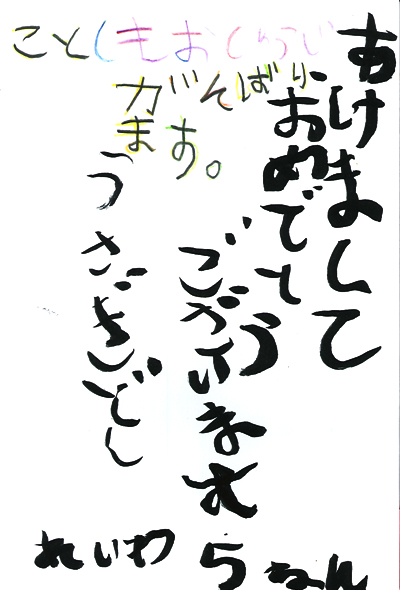 ことしもおしゅうじ
がんばり
ます。
あけまして
おめでとう
ございます
うさぎどし
れいわ5ねん